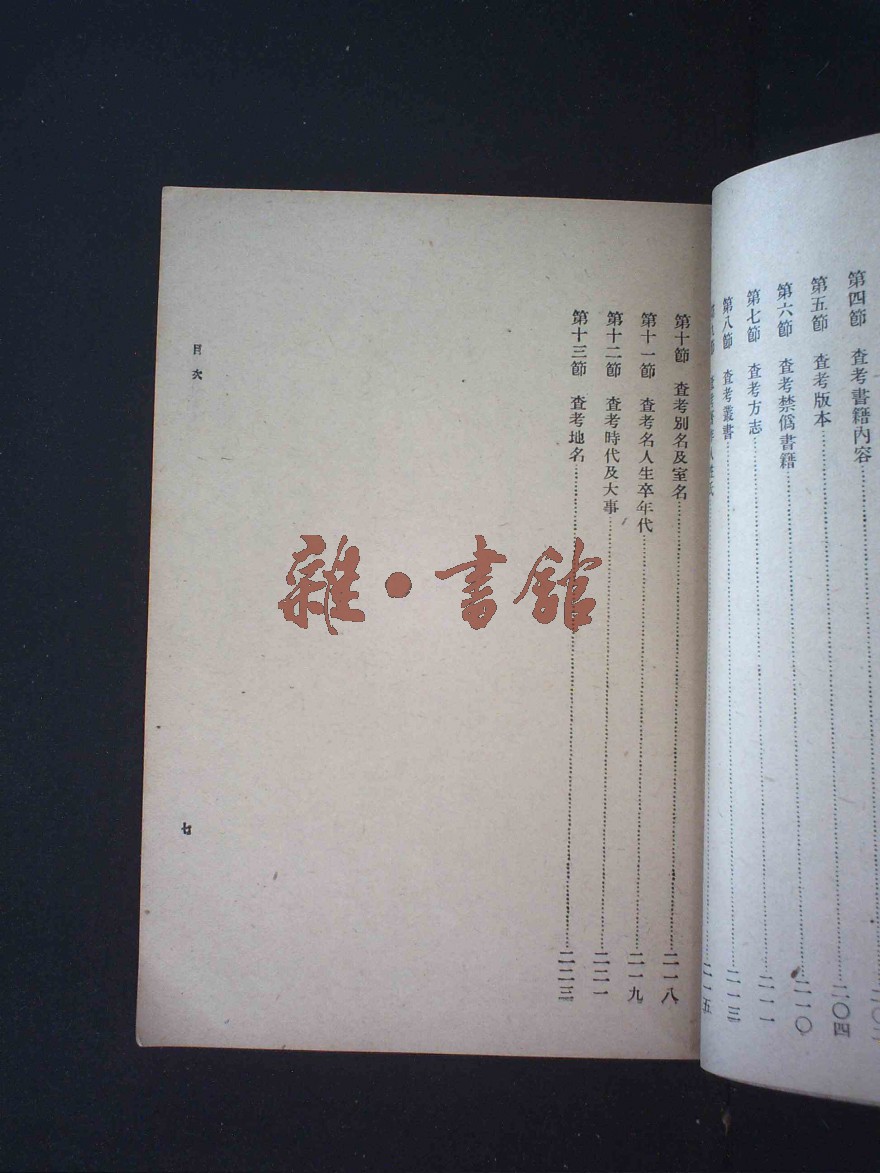 第四節　查考書籍內容
第五節　查考版本………二〇四
第六節　查考禁僞書籍………二一〇
第七節　查考方志………二一一
第八節　查考叢書………二一三
二一五
第十節　查考別名及室名………二一八
第十一節　查考名人生卒年代………二一九
第十二節　查考時代及大事………二二一
第十三節　查考地名………二二三
目次
七
雜·書館